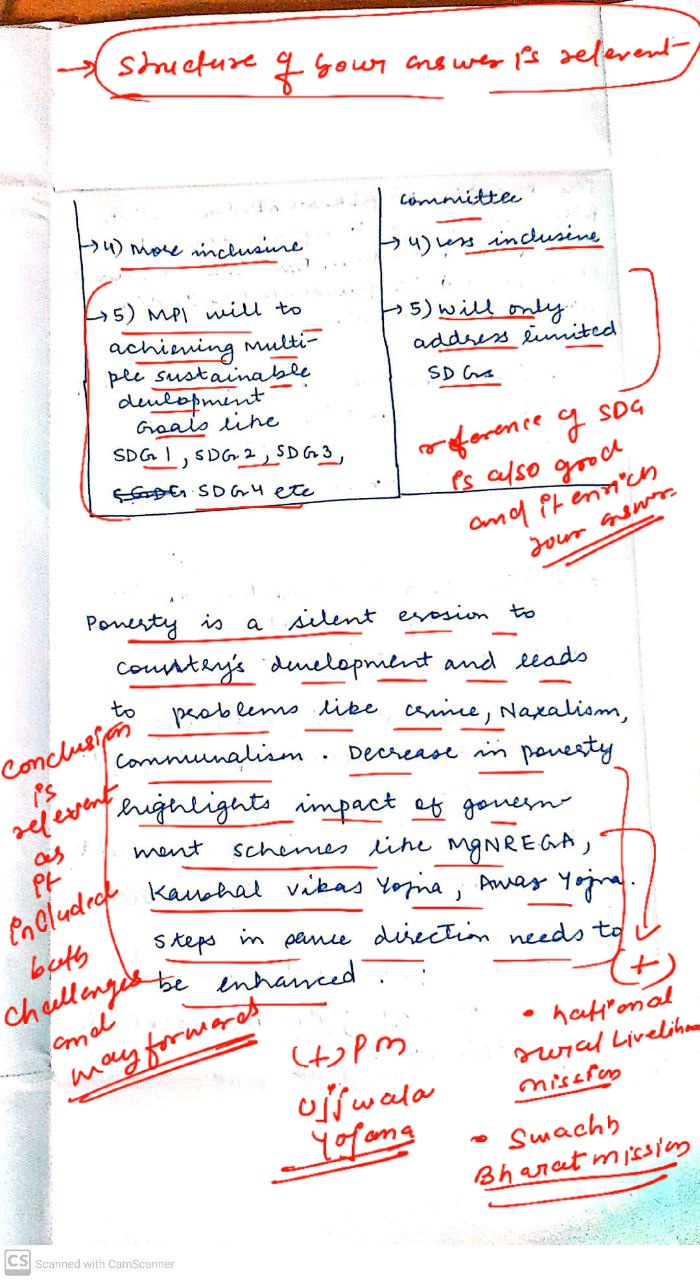 → Structure of your answer is relevent
→ 4) More inclusive
→ 5) MPI will to
achieving Multi-
ple sustainable
development
Goals like
SDG 1, SDG 2, SDG 3,
SDG 4 etc
committee
→ 4) Less inclusive
→ 5) will only
address limited
SDGs
reference of SDG
is also good
and it enrich
your answer.
Poverty is a silent erosion to
country's development and leads
to problems like crime, Naxalism,
communalism. Decrease in poverty
highlights impact of govern-
ment schemes like MgNREGA,
Kaushal vikas Yojna, Awas Yojna.
steps in same direction needs to
be enhanced.
conclusion
is
relevent
as
it
included
both
challenges
and
way forwards
(+) PM
Ujjwala
Yojana
(+)
• National
rural Livelihood
mission
• Swachh
Bharat mission
CS Scanned with CamScanner